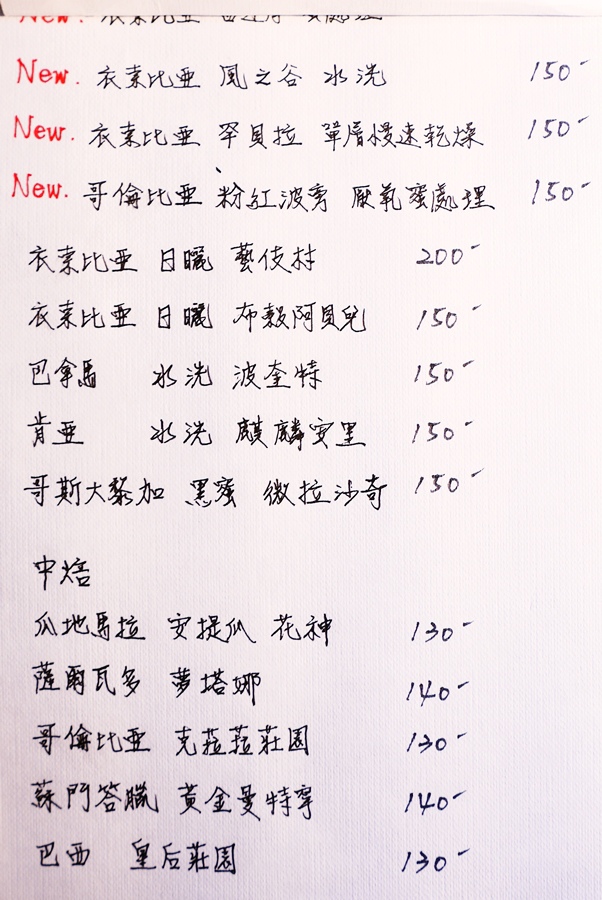 New. 衣索比亞
New. 衣索比亞 風之谷 水洗 150-
New. 衣索比亞 罕貝拉 單層慢速乾燥 150-
New. 哥倫比亞 粉紅波旁 厭氧蜜處理 150-
衣索比亞 日曬 藝伎村 200-
衣索比亞 日曬 布穀阿貝兒 150-
巴拿馬 水洗 波奎特 150-
肯亞 水洗 麒麟安里 150-
哥斯大黎加 黑蜜 微拉沙奇 150-
中焙
瓜地馬拉 安提瓜 花神 130-
薩爾瓦多 夢塔娜 140-
哥倫比亞 克菈菈莊園 130-
蘇門答臘 黃金曼特寧 140-
巴西 皇后莊園 130-